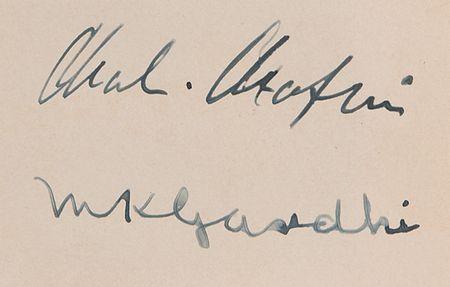 Chas. Chaplin
MKGandhi